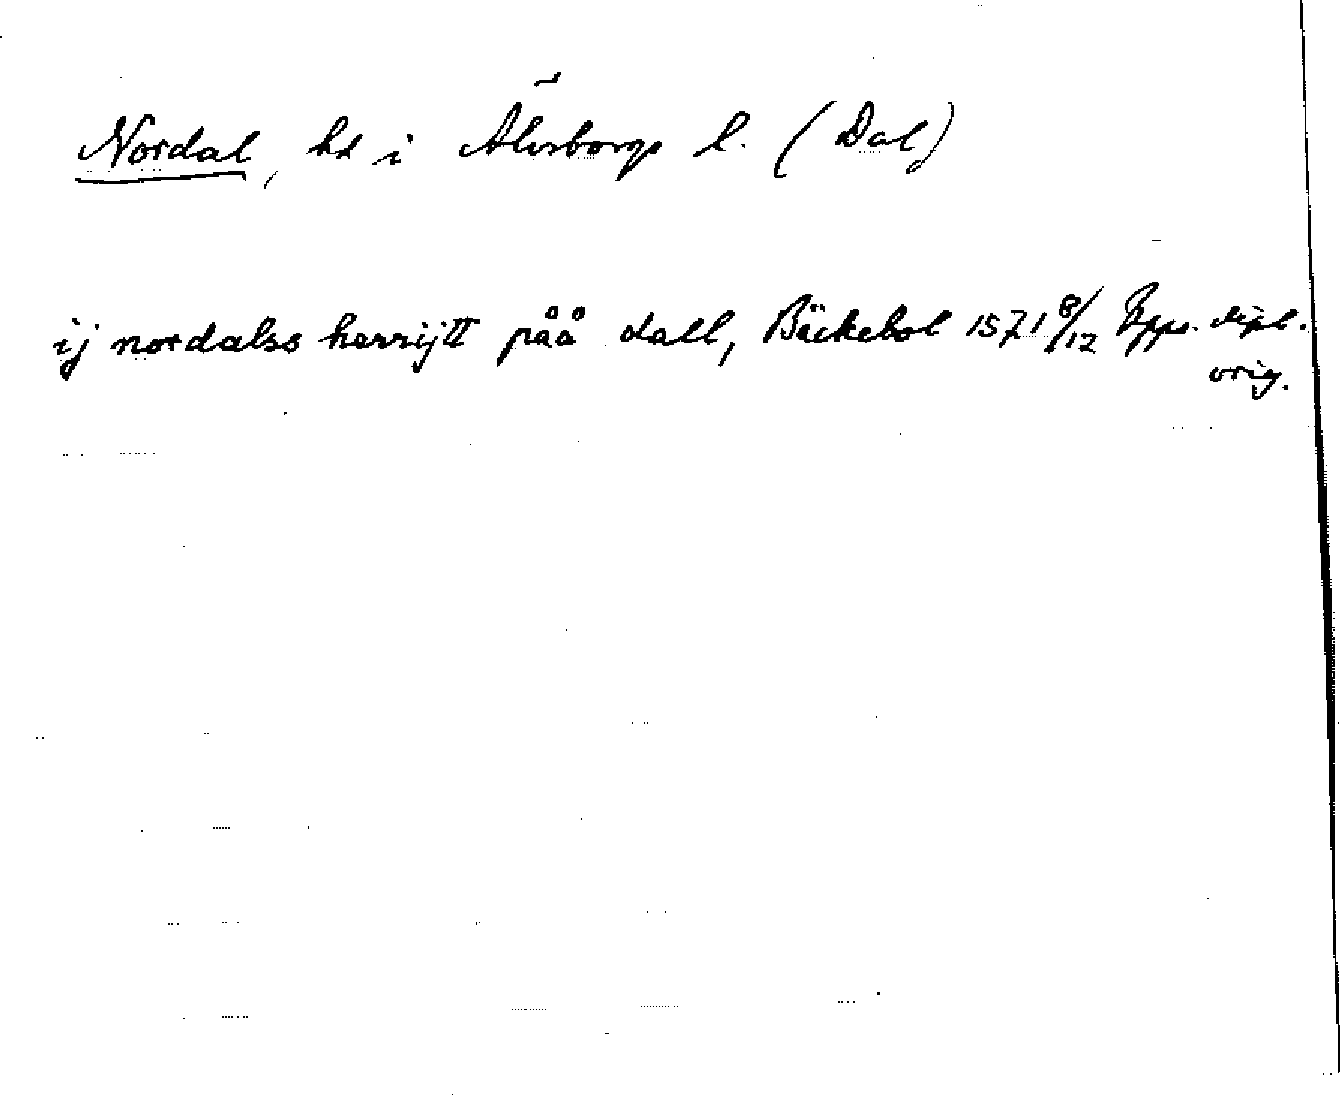 Nordal, hd i Älvsborgs l. (Dal)
ij nordalss herrijtt påå dall, Bäckebol 1571 8/12 Upps. dipl.
orig.